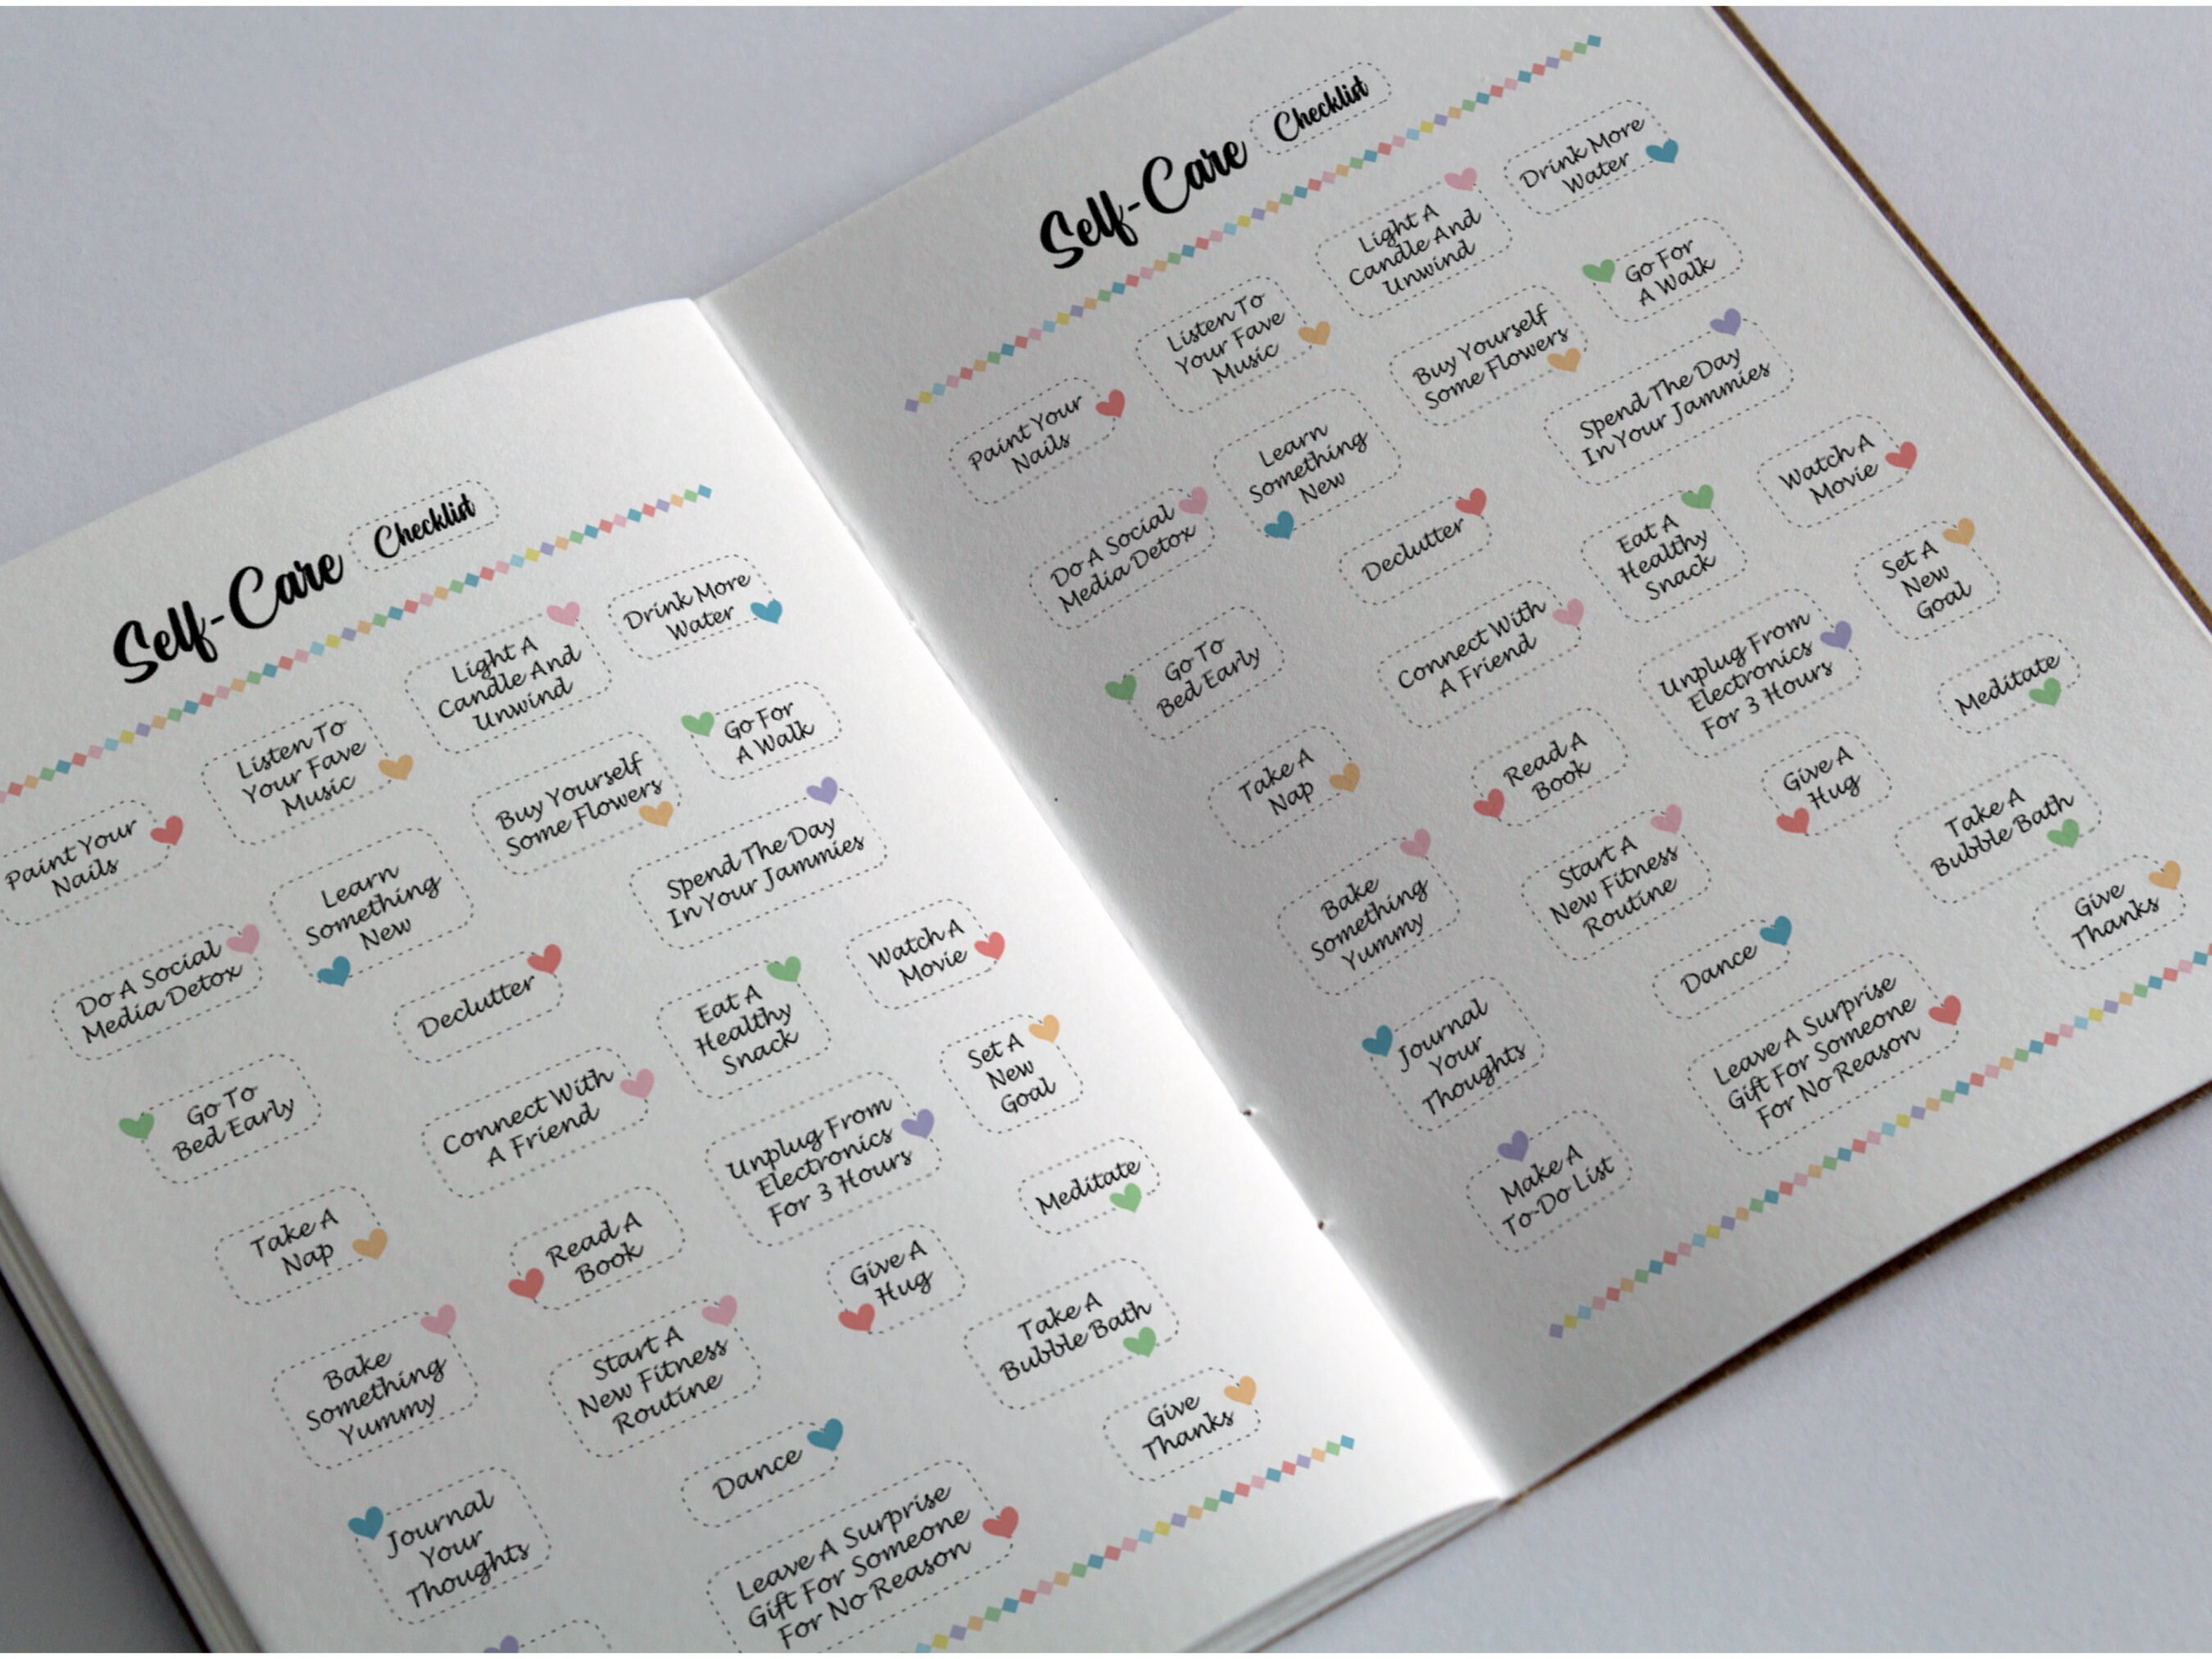 Self-Care Checklist
Drink More
Water
Light A
Candle And
Unwind
Listen To
Your Fave
Music
Paint Your
Nails
Go For
A Walk
Buy Yourself
Some Flowers
Learn
Something
New
Do A Social
Media Detox
Spend The Day
In Your Jammies
Declutter
Go To
Bed Early
Watch A
Movie
Eat A
Healthy
Snack
Connect With
A Friend
Take A
Nap
Set A
New
Goal
Unplug From
Electronics
For 3 Hours
Read A
Book
Bake
Something
Yummy
Meditate
Give A
Hug
Start A
New Fitness
Routine
Journal
Your
Thoughts
Take A
Bubble Bath
Dance
Give
Thanks
Leave A Surprise
Gift For Someone
For No Reason
Self-Care Checklist
Drink More
Water
Light A
Candle And
Unwind
Listen To
Your Fave
Music
Paint Your
Nails
Go For
A Walk
Buy Yourself
Some Flowers
Learn
Something
New
Do A Social
Media Detox
Spend The Day
In Your Jammies
Declutter
Go To
Bed Early
Watch A
Movie
Eat A
Healthy
Snack
Connect With
A Friend
Take A
Nap
Set A
New
Goal
Unplug From
Electronics
For 3 Hours
Read A
Book
Bake
Something
Yummy
Meditate
Give A
Hug
Start A
New Fitness
Routine
Journal
Your
Thoughts
Take A
Bubble Bath
Dance
Make A
To-Do List
Give
Thanks
Leave A Surprise
Gift For Someone
For No Reason